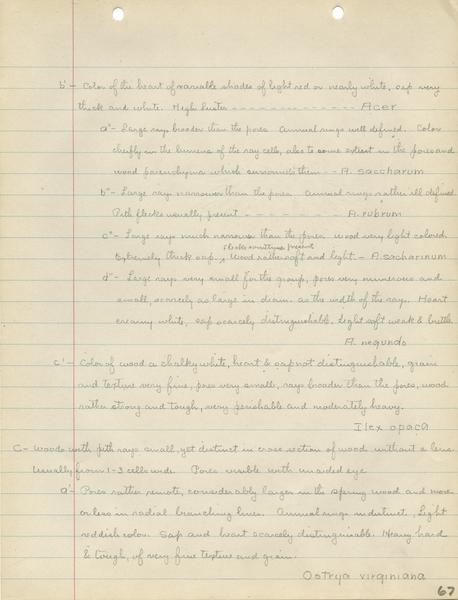 b' - Color of the heart of variable shades of light red or nearly white, sap very
thick and white. High luster - - - - - - - - - - - - - - Acer
a" - Large rays broader than the pores. Annual rings well defined. Color
chiefly in the lumens of the ray cells, also to some extent in the pores and
wood parenchyma which surrounds them - - A. saccharum
b" - Large rays narrower than the pores. Annual rings rather ill defined.
Pith flecks usually present - - - - - - - - A. rubrum
c" - Large rays much narrower than the pores. Wood very light colored.
flecks sometimes present
Extremely thick sap. , Wood rather soft and light - A. saccharinum
d" - Large rays very small for the group, pores very numerous and
small, scarcely as large in diam. as the width of the ray. Heart
creamy white, sap scarcely distinguishable. Light soft weak & brittle
A. negundo
c' - Color of wood a chalky white, heart & sap not distinguishable, grain
and texture very fine, pores very small, rays broader than the pores, wood
rather strong and tough, very perishable and moderately heavy.
Ilex opaca
C - Woods with pith rays small, yet distinct in cross section of wood without a lens
Usually from 1-3 cells wide. Pores visible with unaided eye
a' - Pores rather remote, considerably larger in the spring wood and more
or less in radial branching lines. Annual rings indistinct, Light
reddish color. Sap and heart scarcely distinguishable. Heavy hard
& tough, of very fine texture and grain.
Ostrya virginiana
67